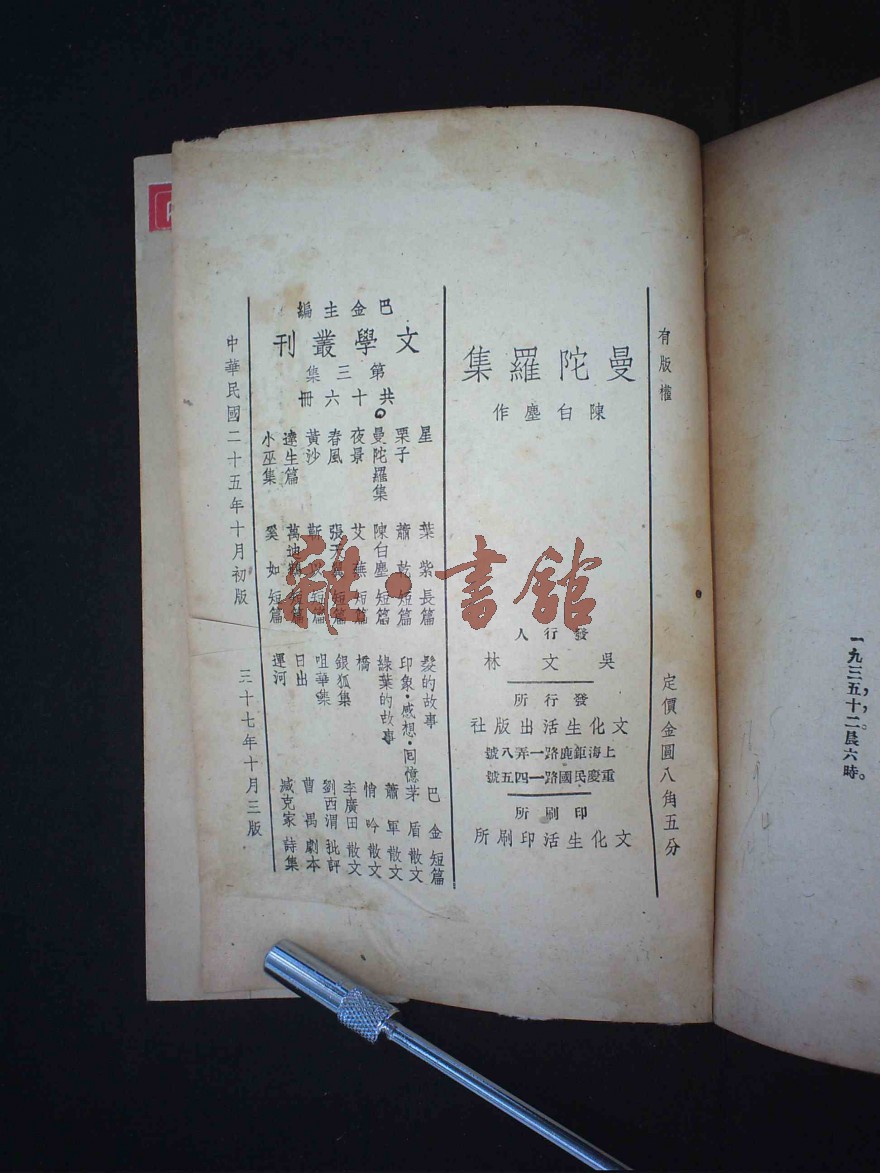 晨六時。
有版權
定價金圓八角五分
曼陀羅集
陳白塵作
發行人
吳文林
發行所
文化生活出版社
上海鉅鹿路一弄八號
重慶民國路一四五號
印刷所
文化生活印刷所
巴金主編
文學叢刊
第三集
共十六冊
星 葉紫 長篇
栗子 蕭乾 短篇
曼陀羅集 陳白塵 短篇
夜景 艾蕪 短篇
春風 張天翼 短篇
黃沙 靳以 短篇
達生篇 萬迪鶴 短篇
小巫集 奚如 短篇
髮的故事 巴金 短篇
印象·感想·回憶 茅盾 散文
綠葉的故事 蕭軍 散文
橋 悄吟 散文
銀狐集 李廣田 散文
咀華集 劉西渭 批評
日出 曹禺 劇本
運河 臧克家 詩集
中華民國二十五年十月初版
三十七年十月三版
雜·書館